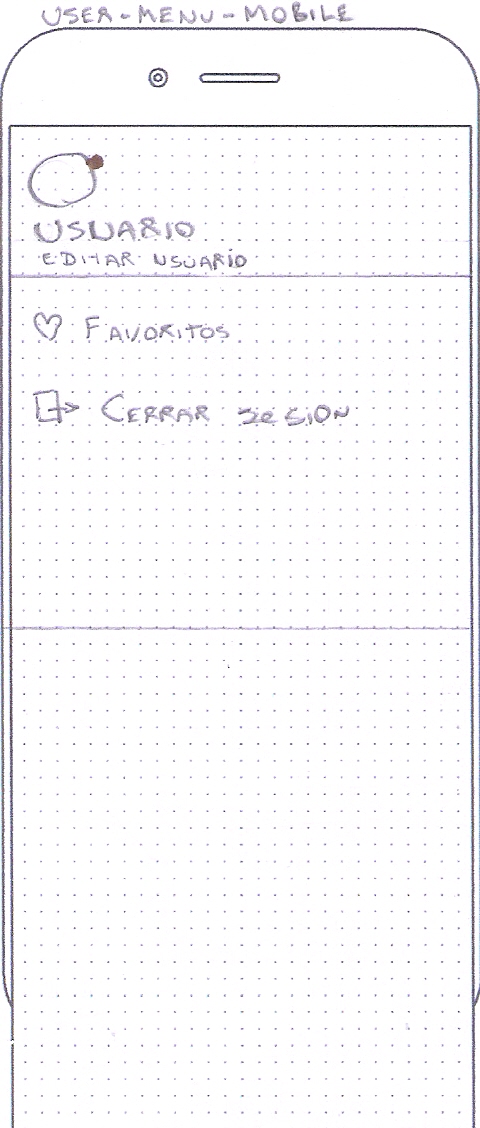 USER-MENU-MOBILE
USUARIO
EDITAR USUARIO
FAVORITOS
CERRAR SESION